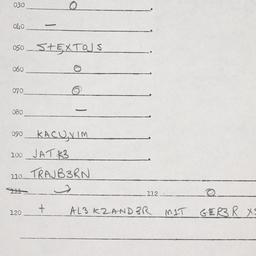 030 O
040 —
050 S+EXTOJS
060 O
070 O
080 —
090 KACU,VIM
100 JAT K3
110 TRAJB3RN
111 112 O
120 + AL3KZAND3R MIT GER3R